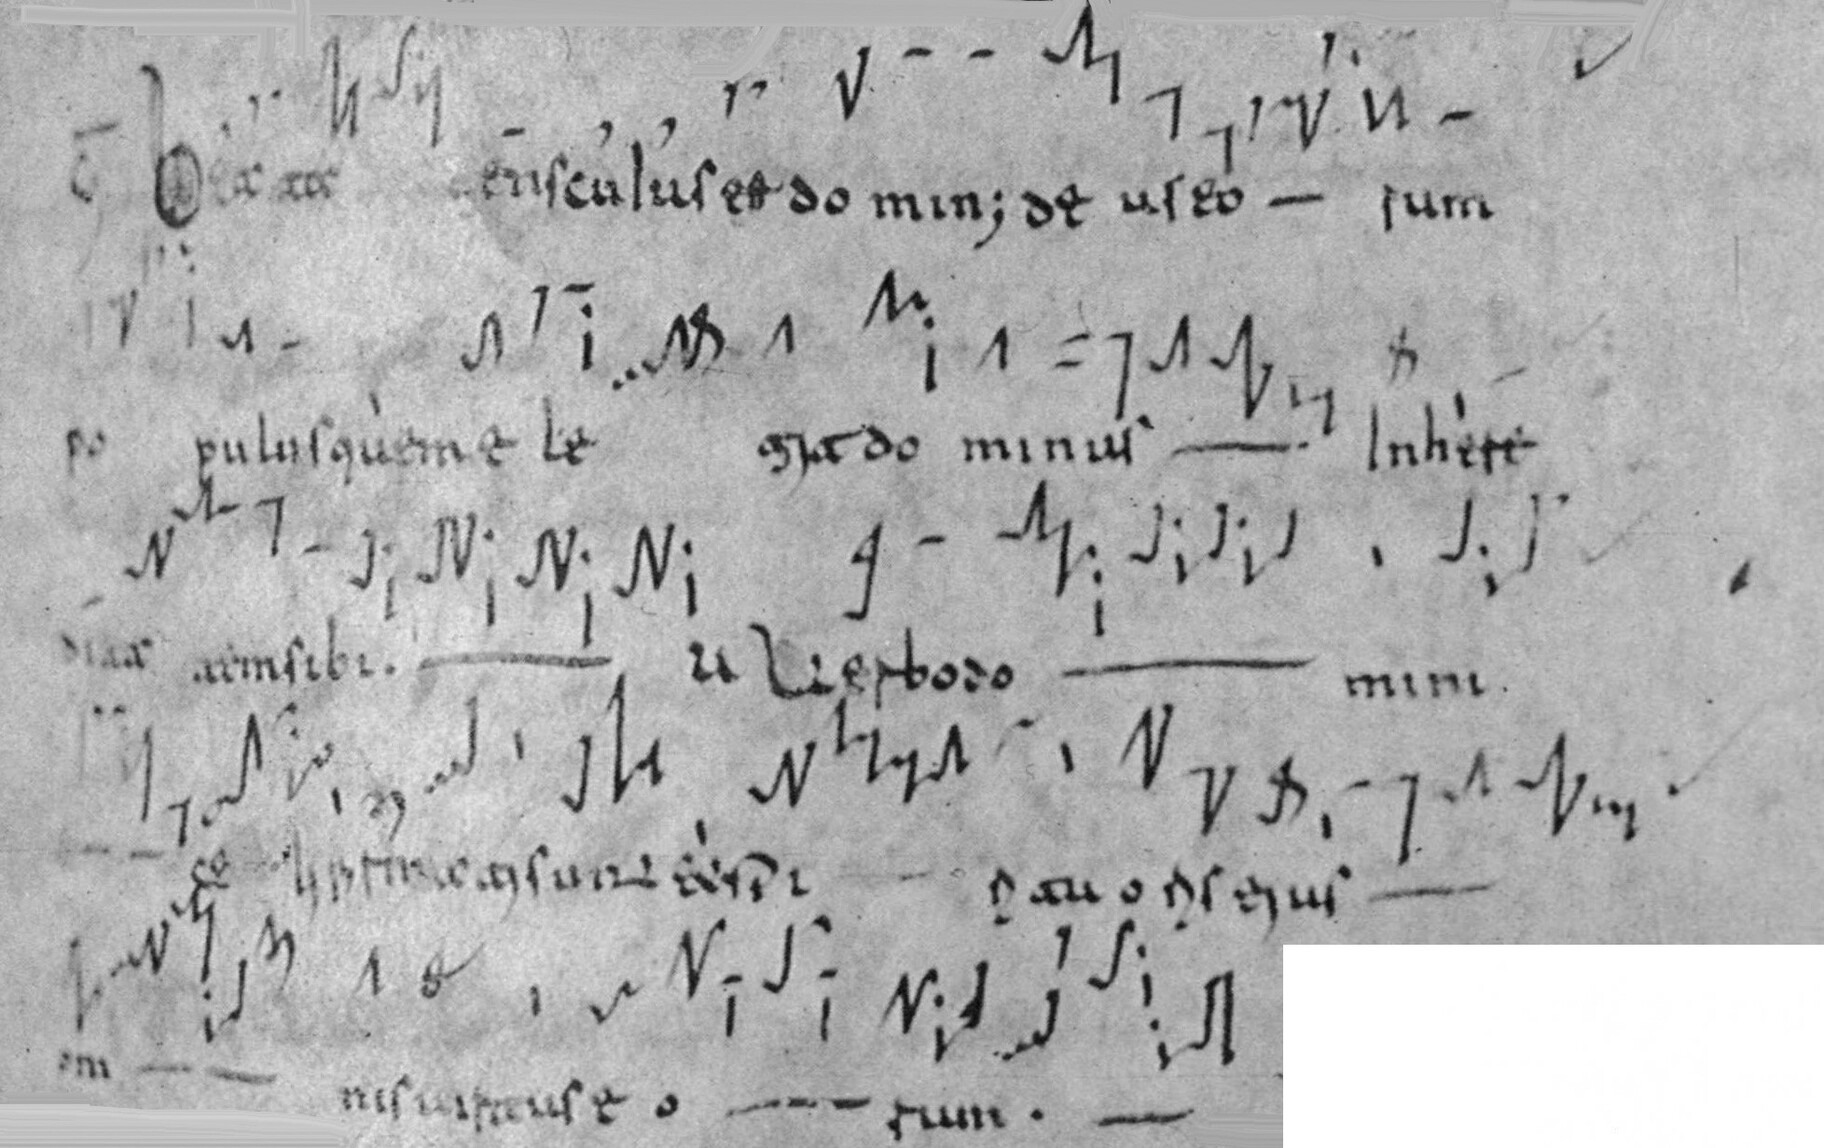 Beata genscuius est do min; de us eo — rum
po pulusquem e le git do minus — In here
ditatemsibi. — U Uerbo do — mini.
— — ce li sunt et spi — ritu oris eius —
— — nis uirtus e o — rum. —